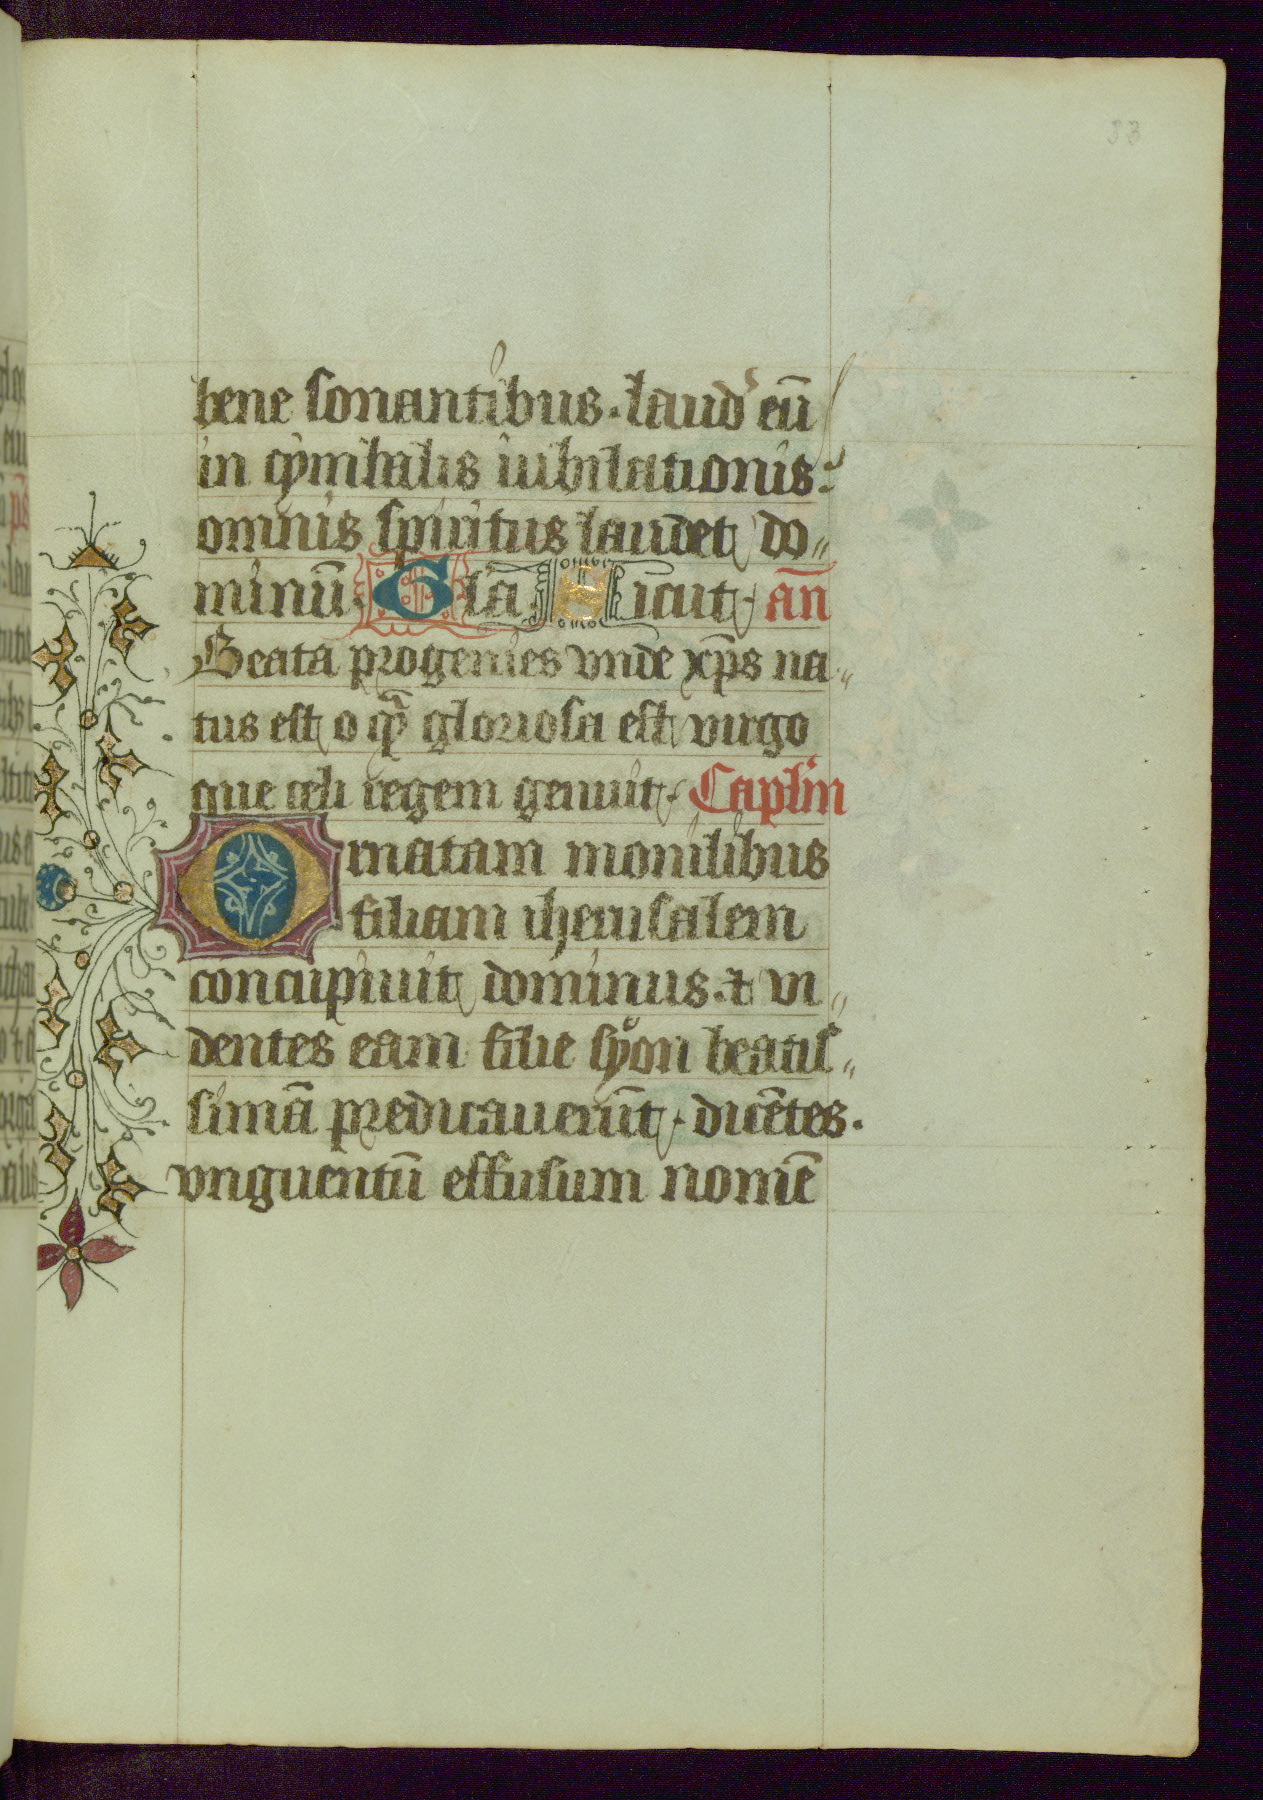 33
bene sonantibus. laud' eū
in cymbalis iubilationis:
omnis spiritus laudet do„
minū. Gl'a. Sicut. an̄
Beata progenies vnde xp̄s na„
tus est o q̄ gloriosa est virgo
que celi regem genuit. Caplm̄
Ornatam monilibus
filiam iherusalem
concupiuit dominus. ⁊ vi„
dentes eam filie syon beatis„
simā predicauerūt. dicētes.
vnguentū effusum nomē